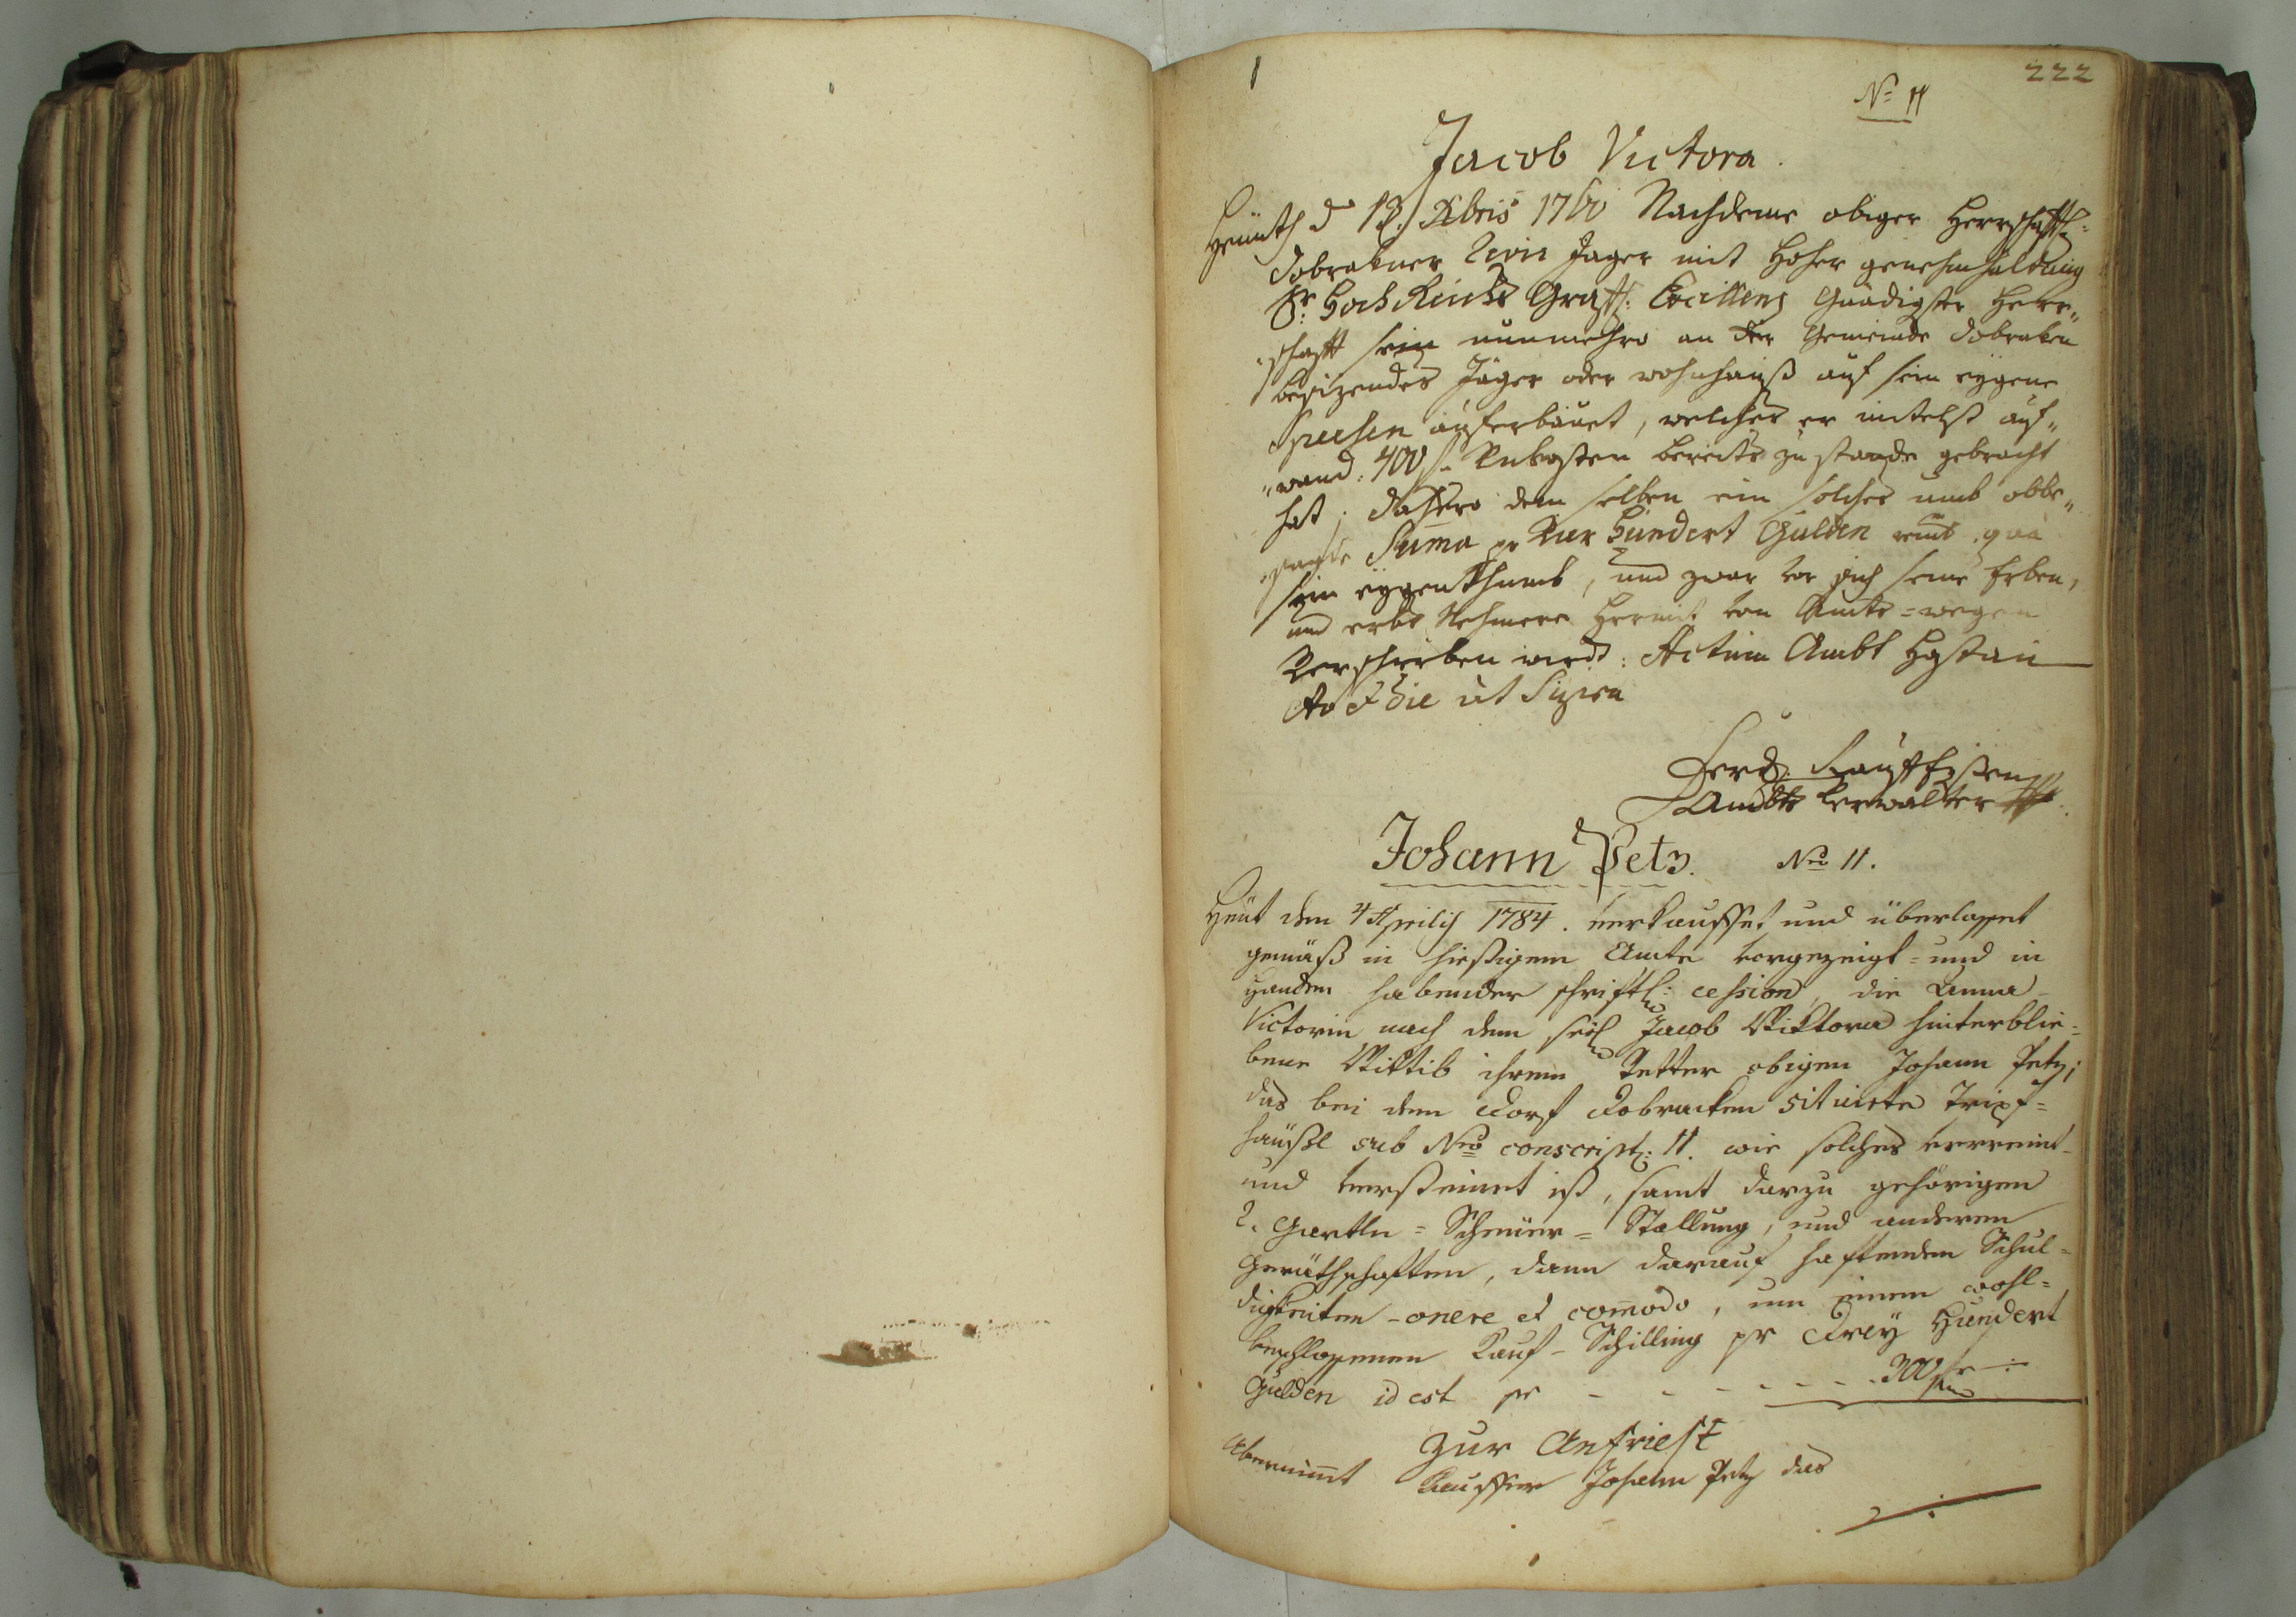 222
No 11
Jacob Victora.
Heünth d 13. Xbris 1760 Nachdeme obiger Herrschaftl:
Dobrakner Revir Jager mit Hoher genehmhaltung
Sr: Hoch Reichs Gräffl: Excellenz Gnädigster Herr„
„schafft sein nunmehro an der Gemeinde Dobraken
besizendes Jäger oder wohnhauß auf sein eygene
Spesen auferbauet, welches er mitelst auf„
„wand: 400 f. Unkosten bereits zu stande gebracht
hat; Dahero dem selben ein solches umb obbe„
„sagte Summa pr Vier Hundert Gulden reünt qua
sein eygenthumb, und zwar vor sich seine Erben,
und erbs Nehmere hermit von Amts=wegen
Verschrieben wird: Actum Ambt Hostau
Ao & die ut Supra
Ferd.
Ambts Verwalter
Johann Petz. Nro 11.
Heüt den 4 Aprilis 1784. verkauffet und überlasset
gemäß in hiesigem Amte vorgezeigt= und in
Handen habender schriftl: cession, die Anna
Victorin nach dem seel Jacob Viktora hinterblie=
bene Wittib ihrem Vetter obigen Johann Petz,
das bei dem Dorf Dobracken situirte Tripf=
häußl sub Nro conscript: 11. wie solches verreint
und versteinet ist, samt darzu gehörigen
2. Gartln= Scheüer= Stallung, und anderen
Geräthschaften, dann darauf haftenden Schul=
digkeiten - onere et commodo, um einen wohl=
beschlossenen Kauf=Schilling pr Drey Hundert
Gulden id est pr - - - - - - 300 f
Zur Anfriest
Übernimmt Kauffer Johann Petz das